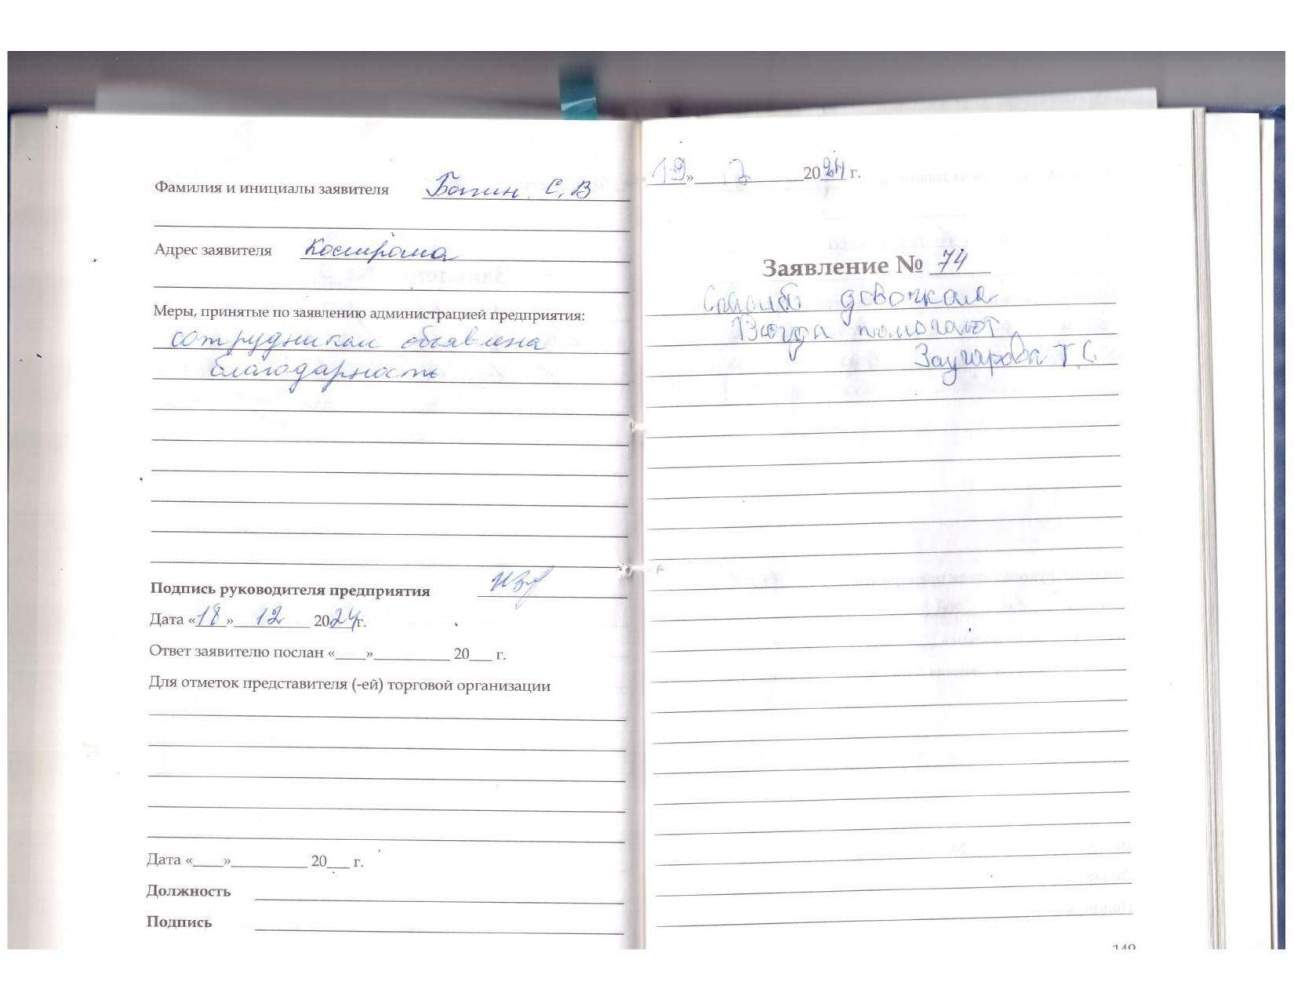 Фамилия и инициалы заявителя С.В
Адрес заявителя Кострома
Меры, принятые по заявлению администрацией предприятия:
сотрудникам объявлена
благодарность
Подпись руководителя предприятия
Дата «18» 12 2024г.
Ответ заявителю послан «___»__________ 20___ г.
Для отметок представителя (-ей) торговой организации
Дата «____»__________ 20___ г.
Должность
Подпись
19» 2024 г.
Заявление № 74
Спасибо девочкам
Всегда помогают
Т.С.
149